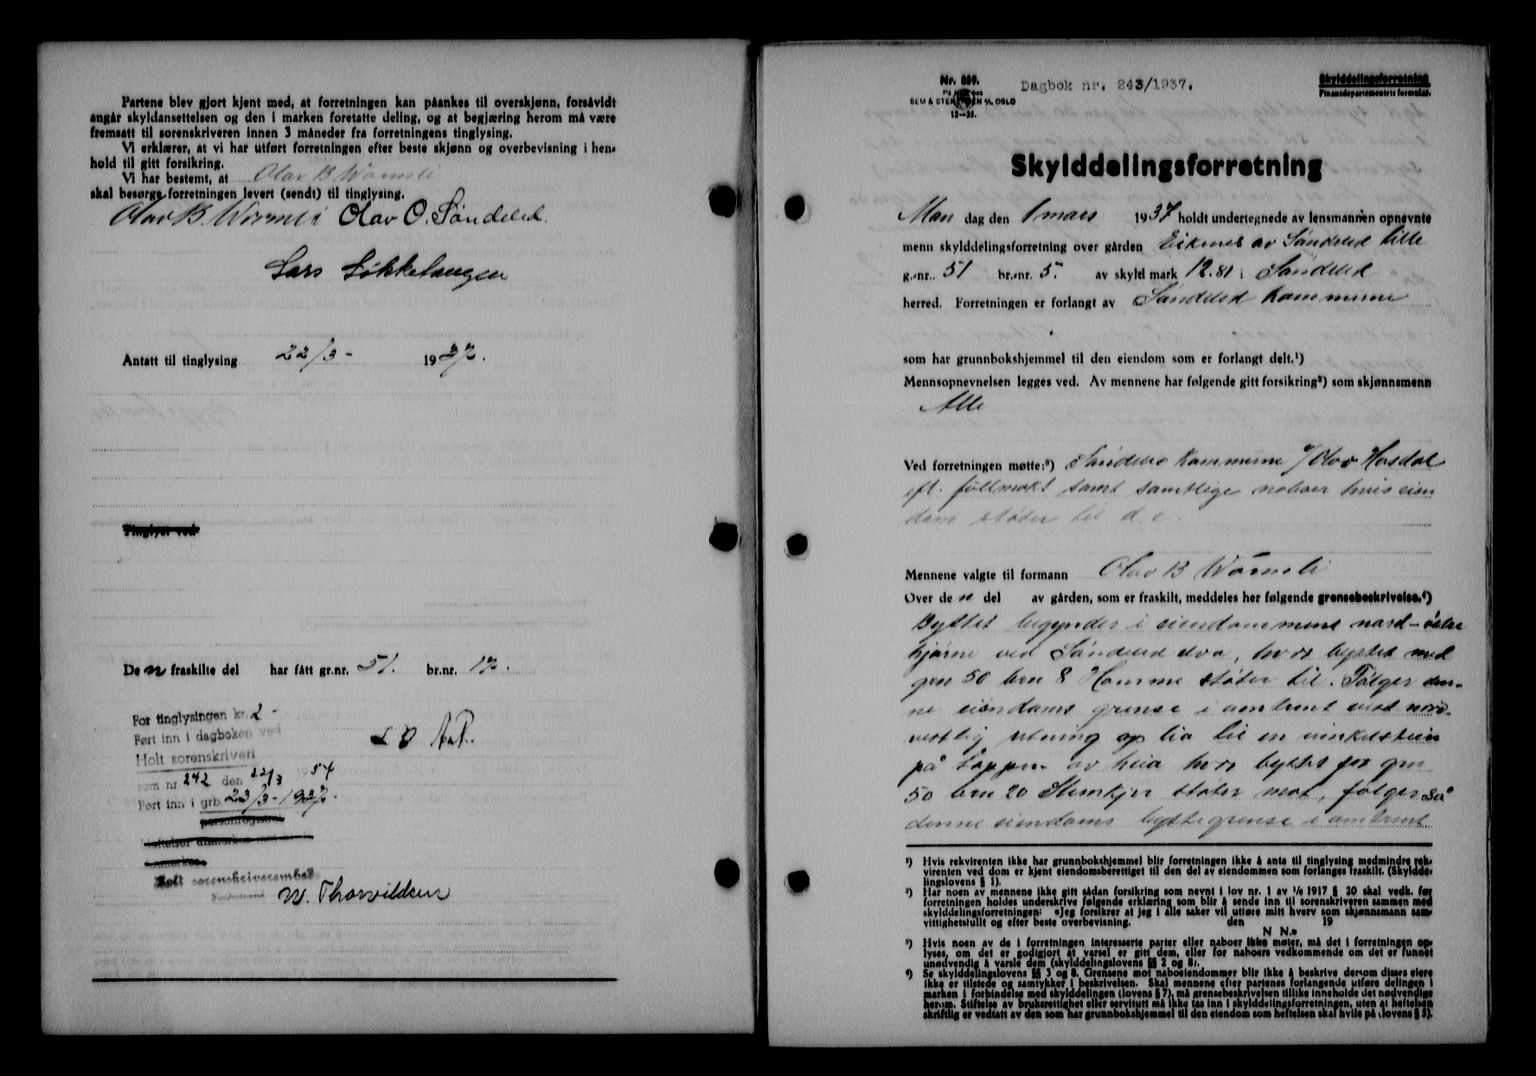 Partene blev gjort kjent med, at forretningen kan påankes til overskjønn, forsåvidt
angår skyldansettelsen og den i marken foretatte deling, og at begjæring herom må være
fremsatt til sorenskriveren innen 3 måneder fra forretningens tinglysing.
Vi erklærer, at vi har utført forretningen efter beste skjønn og overbevisning i hen-
hold til gitt forsikring.
Vi har bestemt, at Olav B Wormeli
skal besørge forretningen levert (sendt) til tinglysing.
Olav B. Wormli Olav O. Søndeled.
Lars Løkkelaugen
Antatt til tinglysing 22/3- 1937.
Tinglyst ved
Den fraskilte del har fått gr.nr. 51. br.nr. 17.
For tinglysingen kr. 2-
Ført inn i dagboken ved
Holt sorenskriveri
som nr. 242 den 22/3 19
Ført inn i grb. 23/3-1937.
personregistret
Holt sorenskriverembede
W. Thorvildsen
Nr. 859. Dagbok nr. 243/1937. Skylddelingsforretning
Finansdepartementets formular.
SEM & STENERSEN A/S, OSLO
12-35.
Skylddelingsforretning
Man dag den 1 mars 1937 holdt undertegnede av lensmannen opnevnte
menn skylddelingsforretning over gården Eiknes av Søndeled lille
g.-nr. 51 br.-nr. 5. av skyld mark 12.81 i Søndeled
herred. Forretningen er forlangt av Søndeled Kommune
som har grunnbokshjemmel til den eiendom som er forlangt delt.¹)
Mennsopnevnelsen legges ved. Av mennene har følgende gitt forsikring²) som skjønnsmenn
Alle
Ved forretningen møtte:³) Søndeled Kommune v/ Olav Hasdal
eft. fullmakt samt samtlige naboer hvis eien
dom støter til d. e.
Mennene valgte til formann Olav B Wormeli
Over den del av gården, som er fraskilt, meddeles her følgende grensebeskrivelse.⁴)
Byttet begynder i eiendommens nord-østre
hjørne ved Søndeled elva, hvor byttet med
gnr 50 brn 8 Homme støter til. Følger den-
ne eiendoms grense i omtrent vest nord-
vestlig retning op lia til en vinkelstein
på toppen av heia hvor byttet for gnr
50 brn 20 Stemtjer støter mot, følger så
denne eiendoms byttegrense i omtrent
¹) Hvis rekvirenten ikke har grunnbokshjemmel blir forretningen ikke å anta til tinglysing medmindre rek-
virenten ved dom er kjent eiendomsberettiget til den del av eiendommen som forlanges fraskilt. (Skyldde-
lingslovens § 1).
²) Har noen av mennene ikke gitt sådan forsikring som nevnt i lov nr. 1 av 1/6 1917 § 20 skal vedk. før
forretningen holdes underskrive følgende erklæring som blir å sende inn til sorenskriveren sammen med
skylddelingsforretningen: «Jeg forsikrer at jeg i alle saker vil utføre mitt hverv som skjønnsmann sam-
vittighetsfullt og efter beste overbevisning. den 19
N N.»
³) Hvis noen av de i forretningen interesserte parter eller naboer ikke møter, må det i forretningen op-
lyses, om det er godtgjort at varsel er gitt dem, eller for naboers vedkommende om det er funnet
unødvendig å varsle dem (skylddelingslovens §§ 2 og 8).
⁴) Se skylddelingslovens §§ 3 og 8. Grensene mot naboeiendommer blir ikke å beskrive dersom disses eiere
ikke er tilstede og samtykker i beskrivelsen. Skal mennene efter partenes forlangende utføre delingen i
marken i forbindelse med skylddelingen (lovens § 7), må grensebeskrivelsen tillike inneholde det nødvendige
herom. Stiftelse av bruksrettighet eller servitutt må ikke tas inn i skylddelingsforretningen, uten at heftelsen
skriftlig er vedtatt av den som har grunnbokshjemmel til den eiendom som heftelsen skal hvile på (lovens § 3).